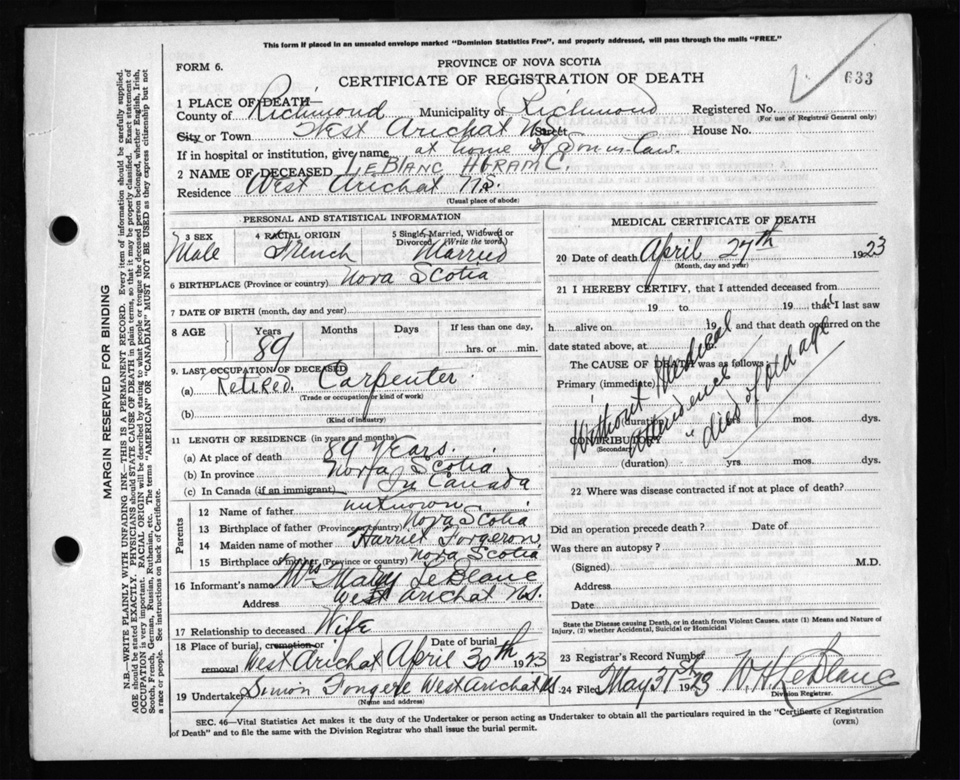 This form if placed in an unsealed envelope marked "Dominion Statistics Free", and properly addressed, will pass through the mails "FREE."
FORM 6.
PROVINCE OF NOVA SCOTIA
CERTIFICATE OF REGISTRATION OF DEATH
633
1 PLACE OF DEATH
County of Richmond Municipality of Richmond Registered No.
(For use of Registrar General only)
City or Town West Arichat N.S. Street House No.
If in hospital or institution, give name at home of Son in Law.
2 NAME OF DECEASED LeBlanc Abram C.
Residence West Arichat NS.
(Usual place of abode)
PERSONAL AND STATISTICAL INFORMATION
3 SEX 4 RACIAL ORIGIN 5 Single, Married, Widowed or Divorced (Write the word)
Male French Married
6 BIRTHPLACE (Province or country) Nova Scotia
7 DATE OF BIRTH (month, day and year)
8 AGE Years Months Days If less than one day,
89 hrs. or min.
9. LAST OCCUPATION OF DECEASED
(a) Retired. Carpenter.
(Trade or occupation or kind of work)
(b)
(Kind of industry)
11 LENGTH OF RESIDENCE (in years and months)
(a) At place of death 89 Years.
(b) In province Nova Scotia
(c) In Canada (if an immigrant) In Canada
Parents
12 Name of father unknown.
13 Birthplace of father (Province or country) Nova Scotia
14 Maiden name of mother Harriet Forgeron
15 Birthplace of mother (Province or country) Nova Scotia
16 Informant's name Mrs Mary LeBlanc
Address West Arichat NS.
17 Relationship to deceased Wife
18 Place of burial, cremation or removal Date of burial
West Arichat April 30th 1923
19 Undertaker Simon Fongere West Arichat NS.
(Name and address)
MEDICAL CERTIFICATE OF DEATH
20 Date of death April 27th 1923
(Month, day and year)
21 I HEREBY CERTIFY, that I attended deceased from
19 to 19 that I last saw
h alive on 19 and that death occurred on the
date stated above, at
The CAUSE OF DEATH was as follows:
Primary (immediate)
(duration) yrs. mos. dys.
CONTRIBUTORY
(Secondary)
(duration) yrs. mos. dys.
Without Medical
Attendence
"died of old age
22 Where was disease contracted if not at place of death?
Did an operation precede death? Date of
Was there an autopsy?
(Signed) M.D.
Address
Date
State the Disease causing Death, or in death from Violent Causes, state (1) Means and Nature of Injury, (2) whether Accidental, Suicidal or Homicidal
23 Registrar's Record Number
24 Filed May 31st 1923 W H LeBlanc
Division Registrar.
SEC. 46—Vital Statistics Act makes it the duty of the Undertaker or person acting as Undertaker to obtain all the particulars required in the "Certificate of Registration
of Death" and to file the same with the Division Registrar who shall issue the burial permit.
(OVER)
MARGIN RESERVED FOR BINDING
N.B.—WRITE PLAINLY WITH UNFADING INK—THIS IS A PERMANENT RECORD. Every item of information should be carefully supplied.
AGE should be stated EXACTLY. PHYSICIANS should STATE CAUSE OF DEATH in plain terms, so that it may be properly classified. Exact statement of
OCCUPATION is very important. RACIAL ORIGIN will be described by stating to what people or tongue the deceased person belonged, whether English, Irish,
Scotch, French, German, Russian, Ruthenian, etc. The terms "AMERICAN" OR "CANADIAN" MUST NOT BE USED as they express citizenship but not
a race or people. See instructions on back of Certificate.